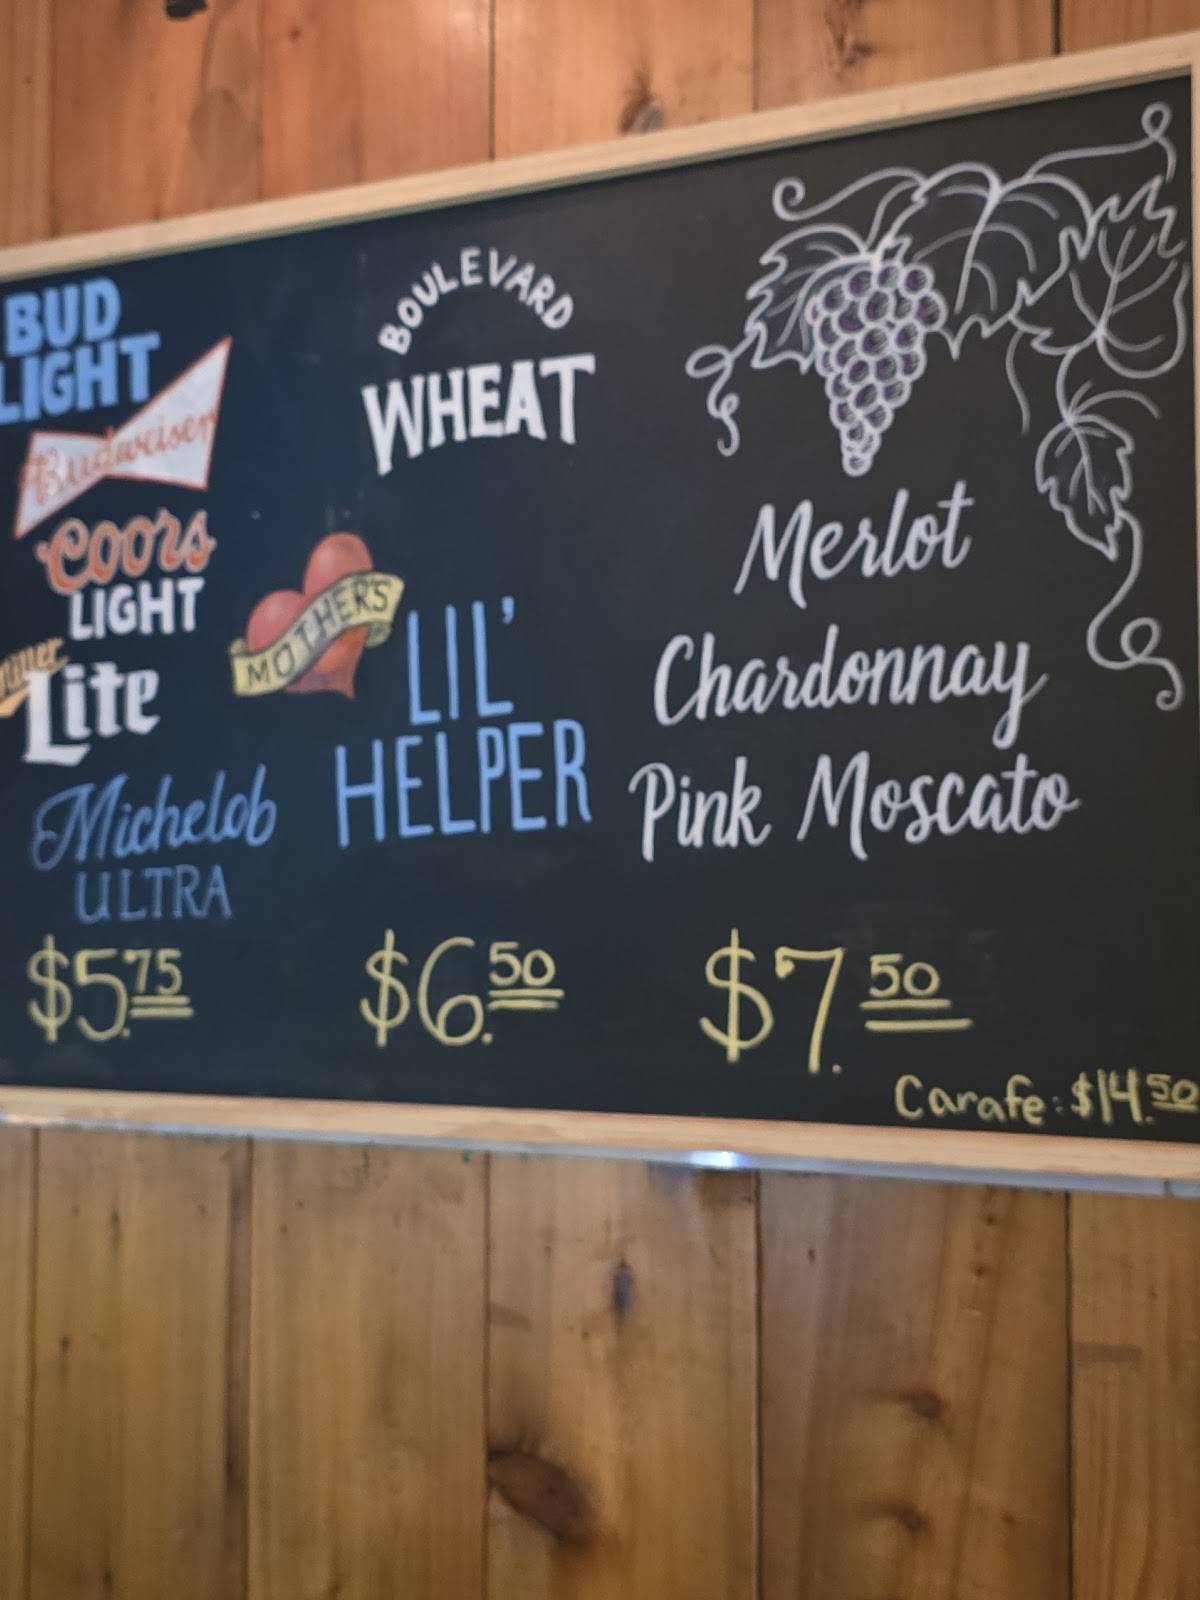 BUD
LIGHT
Budweiser
Coors
LIGHT
Miller
Lite
Michelob
ULTRA
$5.75
BOULEVARD
WHEAT
MOTHER'S
LIL'
HELPER
$6.50
Merlot
Chardonnay
Pink Moscato
$7.50
Carafe: $14.50